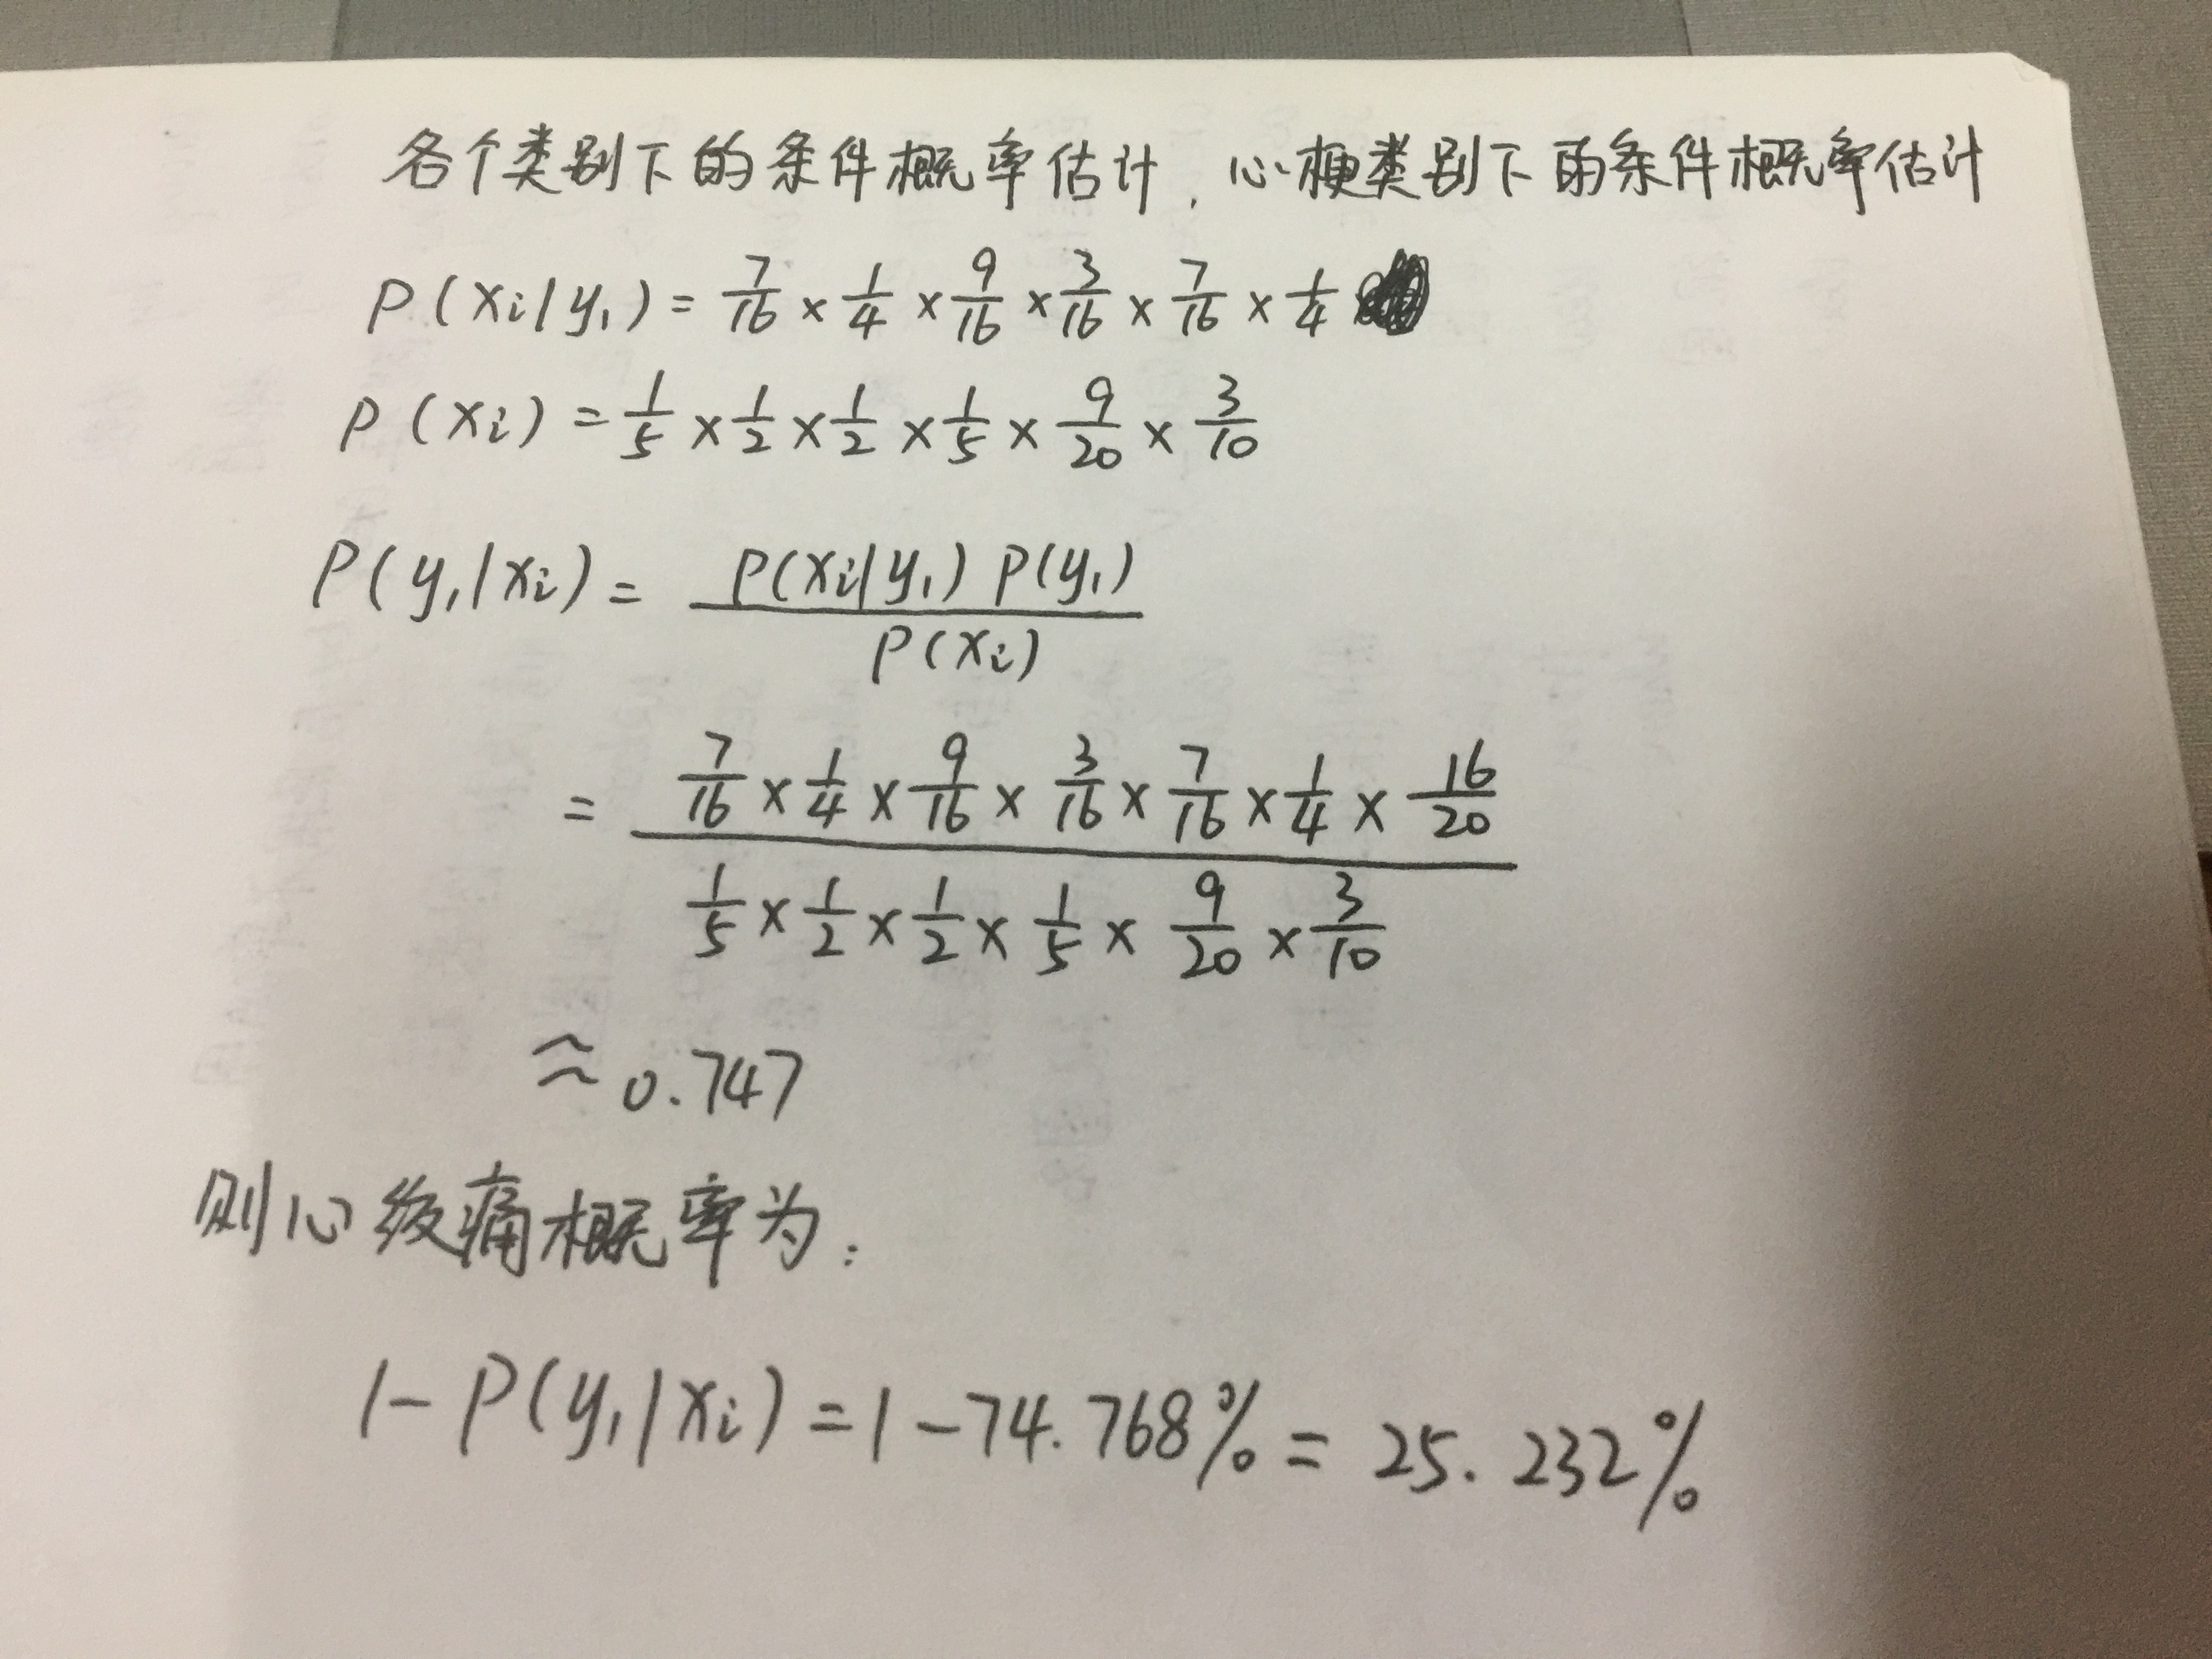 各个类别下的条件概率估计，心梗类别下的条件概率估计
P(xi|y₁) = 7/16 × 1/4 × 9/16 × 3/16 × 7/16 × 1/4
P(xi) = 1/5 × 1/2 × 1/2 × 1/5 × 9/20 × 3/10
P(y₁|xi) = P(xi|y₁) P(y₁) / P(xi)
= 7/16 × 1/4 × 9/16 × 3/16 × 7/16 × 1/4 × 16/20 / 1/5 × 1/2 × 1/2 × 1/5 × 9/20 × 3/10
≈ 0.747
则心绞痛概率为：
1 - P(y₁|xi) = 1 - 74.768% = 25.232%